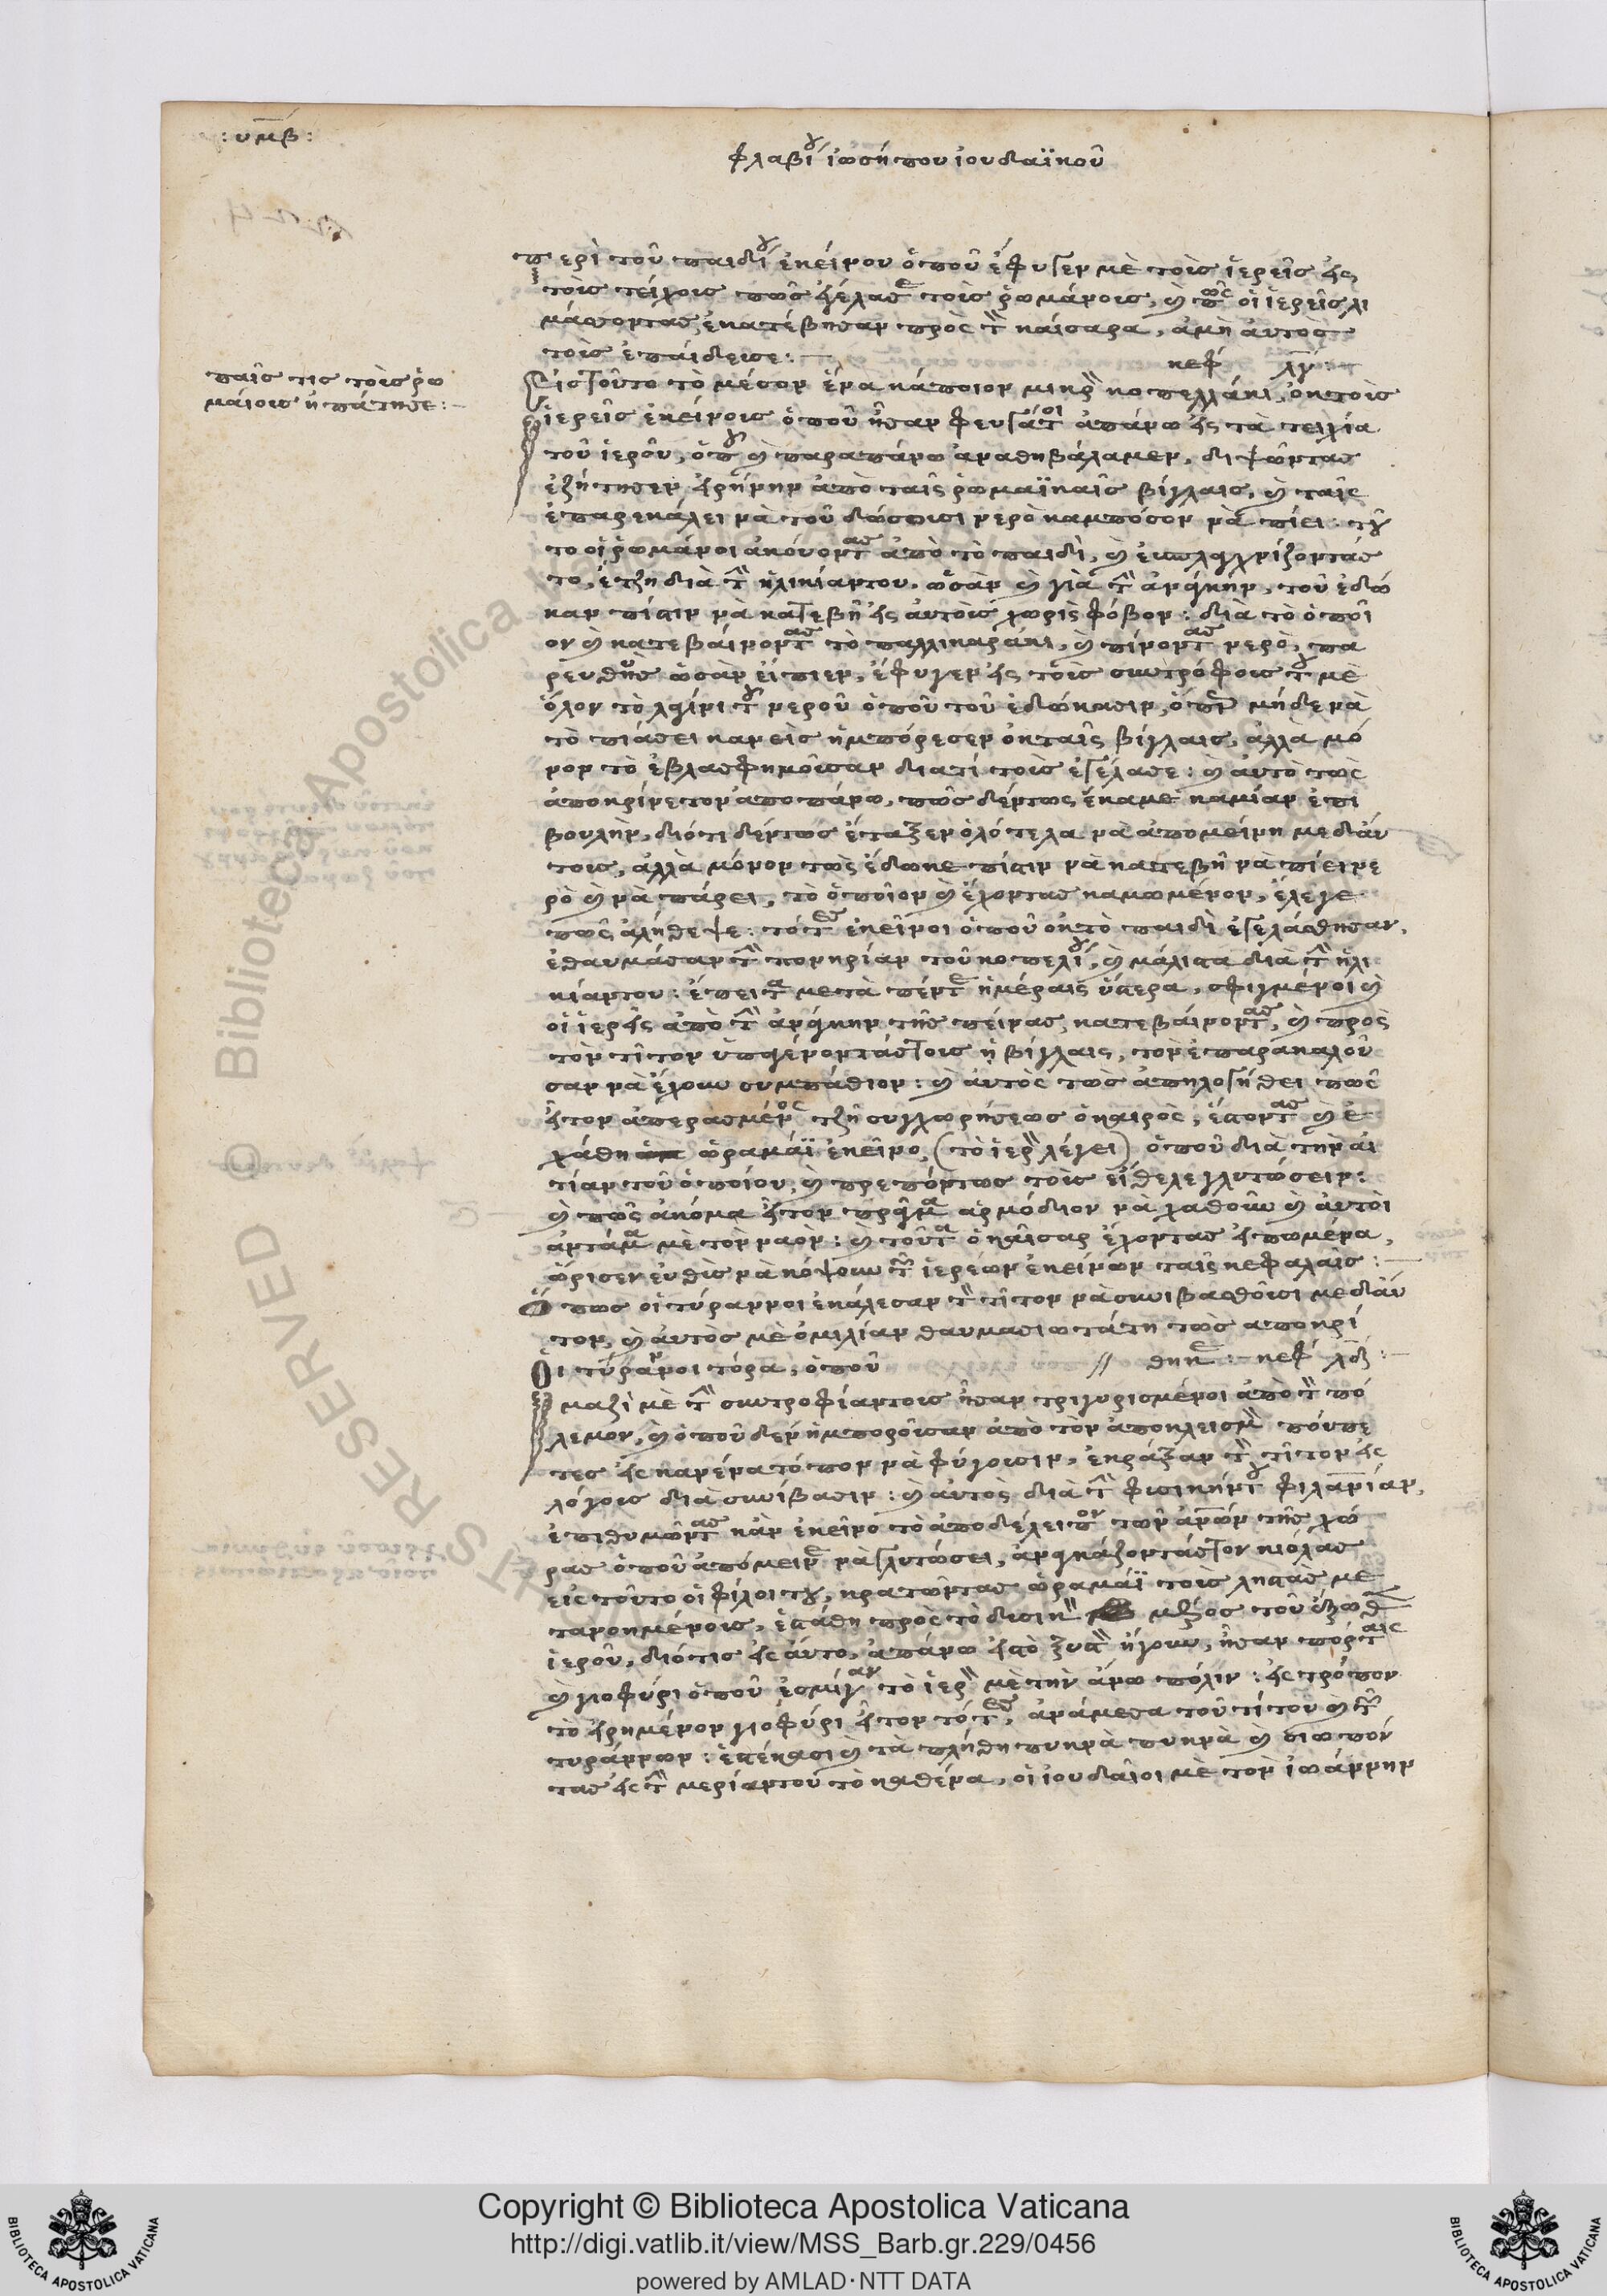 : υμβ :
φλαβίου ἰωσήπου ἰουδαϊκοῦ
περὶ τοῦ παιδίου ἐκείνου ὁποῦ ἔφυγεν μὲ τοὺς ἱερεῖς εἰς
τοὺς τείχους πῶς ἐγέλασε τοὺς ῥωμάνους, καὶ πῶς οἱ ἱερεῖς λι
μάσσοντας ἐκατέβησαν πρὸς τὸν καίσαρα, ἀμὴ αὐτὸς
τοὺς ἐπαίδευσε :
κεφ λγ :
παῖς τις τοὺς ῥω
μαίους ἠπάτησε :
Εἰς τοῦτο τὸ μέσον ἕνα κάποιον μικρὸν κοπελλάκι, ἐκ τοὺς
ἱερεῖς ἐκείνους ὁποῦ ἦσαν φευγάτοι ἀπάνω εἰς τὰ τειχία
τοῦ ἱεροῦ, ὁποῦ καὶ παραπάνω ἀναθηβάλαμεν, διψῶντας
ἐζήτησεν εἰρήνην ἀπὸ ταῖς ῥωμαϊκαῖς βίγλαις, καὶ ταῖς
ἐπαρεκάλει νὰ τοῦ δώσουσι νερὸ καμπόσον νὰ πίει· τοῦ
το οἱ ῥωμάνοι ἀκούοντας ἀπὸ τὸ παιδὶ, καὶ
το, ἔτζη διὰ τὴν ἡλικίαν του, ὡσὰν καὶ γιὰ τὴν ἀνάγκην, τοῦ ἐδώ
καν πίστιν νὰ κατεβῆ εἰς αὐτοὺς χωρὶς φόβον : διὰ τὸ ὁποῖ
ον καὶ κατεβαίνοντας τὸ παλλικαράκι, καὶ πίνοντας νερὸ, πα
ρευθὺς ὡσὰν εἴπιεν, ἔφυγεν εἰς τοὺς συντρόφους του μὲ
ὅλον τὸ λαγίνι τοῦ νεροῦ ὁποῦ τοῦ ἐδώκασιν, ὁποῦ μήδε νὰ
τὸ πιάσει κανεὶς ἠμπόρεσεν ἐκ ταῖς βίγλαις, ἀλλὰ μό
νον τὸ ἐβλασφημοῦσαν διατί τοὺς ἐγέλασε : καὶ αὐτὸ τοὺς
ἀποκρίνετον ἀπο πάνω, πῶς δέν τως ἔκαμε καμίαν ἐπι
βουλὴν, διότι δέν τως ἔταξεν ὁλότελα νὰ ἀπομείνη με δ' αὐ
τους, ἀλλὰ μόνον τὼς ἔδωκε πίστιν νὰ κατεβῆ νὰ πίει νε
ρὸ καὶ νὰ πάρει, τὸ ὁποῖον καὶ ἔχοντας καμωμένον, ἔλεγε
πῶς ἀλήθεψε : τότες ἐκεῖνοι ὁποῦ ἐκ τὸ παιδὶ ἐγελάσθησαν,
ἐθαυμάσαν τὴν πονηρίαν τοῦ κοπελίου, καὶ μάλιστα διὰ τὴν ἡλι
κίαν του : ἔπειτα μετὰ πέντε ἡμέραις ὕστερα, σφιγμένοι καὶ
οἱ ἱερεῖς ἀπὸ τὴν ἀνάγκην τῆς πείνας κατεβαίνοντας, καὶ πρὸς
τὸν τίτον ὑπαγένοντάς τους ἡ βίγλαις, τὸν ἐπαρακαλοῦ
σαν νὰ ἔχουν συμπάθιον : καὶ αὐτὸς τοὺς ἀπηλογήθει πῶς
ἦτον ἀπερασμένος τζῆ συγχωρήσεως ὁ καιρὸς, ἔστοντας καὶ ἐ
χάθη ὡραμάϊ ἐκεῖνο, (τὸ ἱερὸν λέγει) ὁποῦ διὰ τὴν αἰ
τίαν τοῦ ὁποίου, καὶ πρεπόντως τοὺς εἴθελε γλυτώσειν :
καὶ πῶς ἀκόμα ἦτον πρᾶγμα ἁρμόδιον νὰ χαθοῦν καὶ αὐτοὶ
ἀντάμα μὲ τὸν ναόν : καὶ τοῦτα ὁ καῖσαρ ἔχοντας εἰπωμένα,
ὥρισεν εὐθὺς νὰ κόψουν τῶν ἱερέων ἐκείνων ταῖς κεφαλαῖς :
Ὅπως οἱ τύραννοι ἐκάλεσαν τὸν τίτον νὰ συνιβασθοῦσι με δ' αὐ
τον, καὶ αὐτὸς μὲ ὁμιλίαν θαυμασιωτάτη τοὺς ἀποκρί
θηκε : κεφ λδ :
Οἱ τύραννοι τόρα, ὁποῦ
μαζὶ μὲ τὴν συντροφίαν τους ἦσαν τριγυρισμένοι ἀπὸ τὸν πό
λεμον, καὶ ὁποῦ δὲν ἠμποροῦσαν ἀπὸ τὸν ἀποκλεισμὸν πούπε
τες εἰς κανένα τόπον νὰ φύγουσιν, ἐκράξαν τὸν τίτον εἰς
λόγους διὰ συνίβασιν : καὶ αὐτὸς διὰ τὴν φισικήν του φιλανίαν,
ἐπιθυμῶντας κἂν ἐκεῖνο τὸ ἀποδέλειπον τῶν ἀνων τῆς χώ
ρας ὁποῦ ἀπόμεινε νὰ γλυτώσει, ἀναγκάζοντάς τον κιόλας
εἰς τοῦτο οἱ φίλοι του, κρατῶντας ὡραμάϊ τοὺς ληστὰς με
τανοημένους, ἐστάθη πρὸς τὸ δισικὸν μέρος τοῦ ἔξωθεν
ἱεροῦ, διότις εἰς αὐτο, ἀπάνω εἰς τὸ ξυστὸν ἤγουν, ἦσαν πόρταις
καὶ γιοφύρι ὁποῦ ἐσμίγαν τὸ ἱερὸν μὲ τὴν ἄνω πόλιν : εἰς τρόπον
τὸ εἰρημένον γιοφύρι ἦτον τότες, ἀνάμεσα τοῦ τίτου καὶ τῶν
τυράννων : ἐστέκασι καὶ τὰ πλήθη πυκνὰ πυκνὰ καὶ σιωπόν
τας εἰς τὴν μερίαν του τὸ καθένα, οἱ ἰουδαῖοι μὲ τὸν ἰωάννην
Copyright © Biblioteca Apostolica Vaticana
http://digi.vatlib.it/view/MSS_Barb.gr.229/0456
powered by AMLAD · NTT DATA